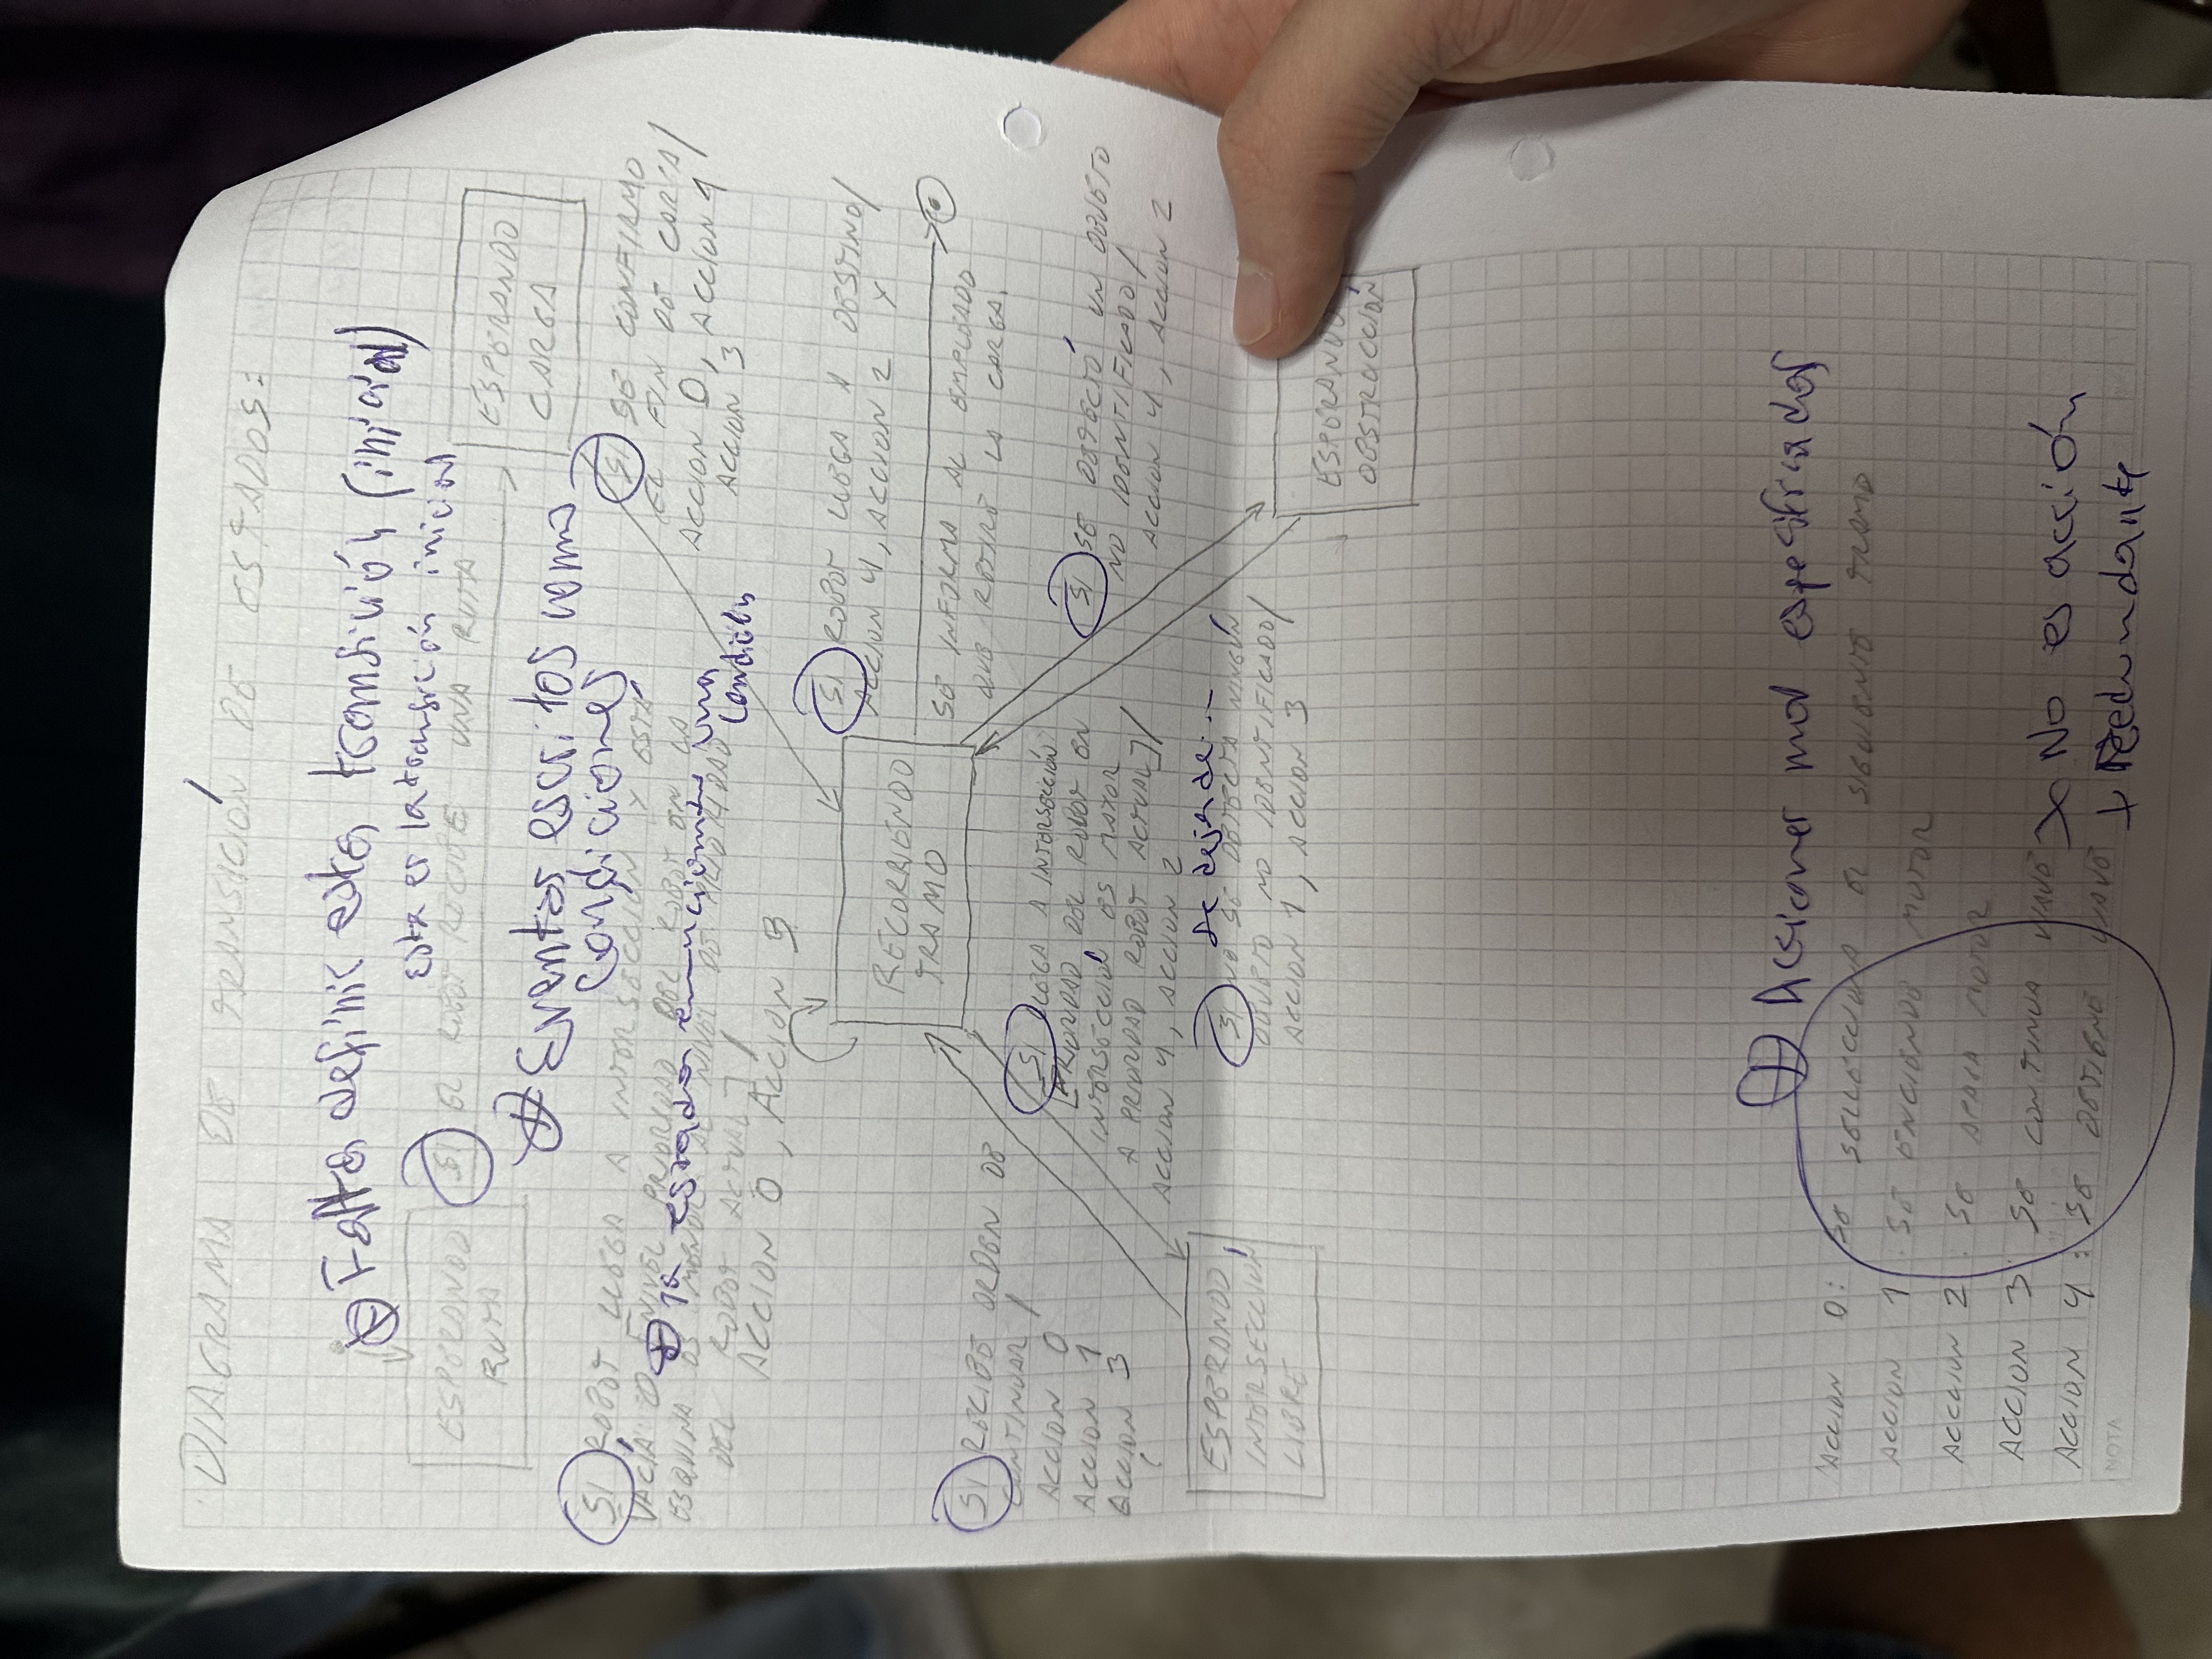 DIAGRAMA DE TRANSICIÓN DE ESTADOS:
Falta definir esta transición (inicial)
esta es la transición inicial
ESPERANDO
RUTA
SI EL ROBOT RECIBE UNA RUTA
ESPERANDO
CARGA
Eventos escritos como
condiciones
SI ROBOT LLEGA A INTERSECCIÓN Y ESTÁ
VACÍA O [NIVEL PRIORIDAD DEL ROBOT EN LA
ESQUINA ES MENOR AL NIVEL DE PRIORIDAD
DEL ROBOT ACTUAL] /
ACCION 0, ACCION 3
ya estados una
condición
SI SE CONFIRMO
EL FIN DE CARGA/
ACCION 0, ACCION 1
ACCION 3
RECORRIENDO
TRAMO
SI ROBOT LLEGA A DESTINO/
ACCION 4, ACCION 2 Y
SE INFORMA AL EMPLEADO
QUE RETIRE LA CARGA.
SI RECIBE ORDEN DE
CONTINUAR /
ACCION 0
ACCION 1
ACCION 3
SI LLEGA A INTERSECCIÓN
[PRIORIDAD DEL ROBOT EN
INTERSECCIÓN ES MAYOR
A PRIORIDAD ROBOT ACTUAL]/
ACCION 4, ACCION 2
SI SE DETECTÓ UN OBJETO
NO IDENTIFICADO/
ACCION 4, ACCION 2
se deja de...
SI NO SE DETECTA NINGÚN
OBJETO NO IDENTIFICADO/
ACCION 1, ACCION 3
ESPERANDO
INTERSECCIÓN
LIBRE
ESPERANDO
OBSTRUCCIÓN
Acciones mal especificadas
ACCION 0: SE SELLECCIONA EL SIGUIENTE TRAMO
ACCION 1: SE ENCIENDE MOTOR
ACCCION 2: SE APAGA MOTOR
ACCION 3: SE CONTINUA VIAJE
No es acción
ACCION 4: SE DETIENE VIAJE
+ Redundante
NOTA